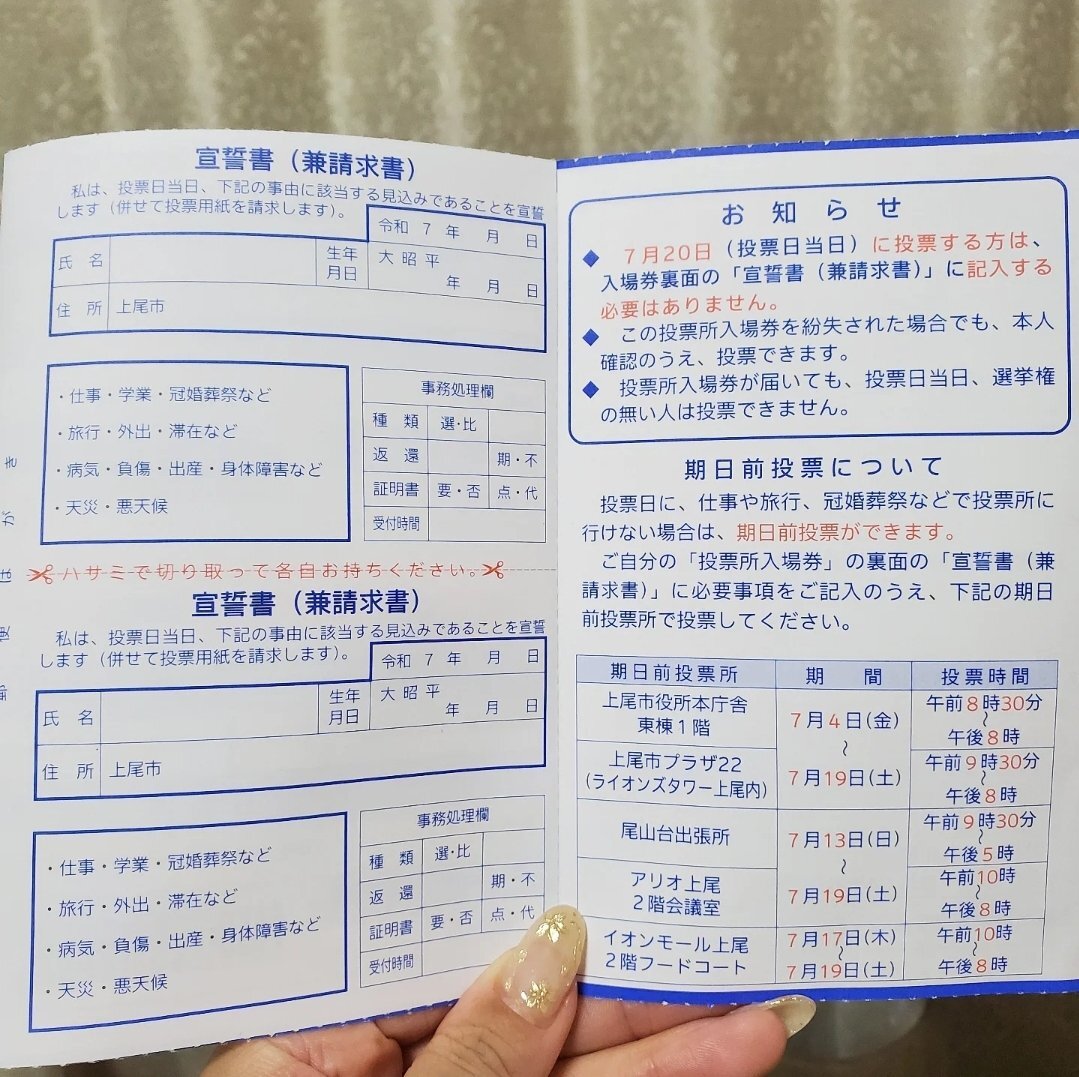 宣誓書（兼請求書）
私は、投票日当日、下記の事由に該当する見込みであることを宣誓
します（併せて投票用紙を請求します）。
令和 7 年 月 日
氏 名
生年
月日
大 昭 平
年 月 日
住 所 上尾市
・仕事・学業・冠婚葬祭など
・旅行・外出・滞在など
・病気・負傷・出産・身体障害など
・天災・悪天候
事務処理欄
種 類 選・比
返 還 期・不
証明書 要・否 点・代
受付時間
ハサミで切り取って各自お持ちください。
宣誓書（兼請求書）
私は、投票日当日、下記の事由に該当する見込みであることを宣誓
します（併せて投票用紙を請求します）。
令和 7 年 月 日
氏 名
生年
月日
大 昭 平
年 月 日
住 所 上尾市
・仕事・学業・冠婚葬祭など
・旅行・外出・滞在など
・病気・負傷・出産・身体障害など
・天災・悪天候
事務処理欄
種 類 選・比
返 還 期・不
証明書 要・否 点・代
受付時間
お知らせ
◆ 7月20日（投票日当日）に投票する方は、
入場券裏面の「宣誓書（兼請求書）」に記入する
必要はありません。
◆ この投票所入場券を紛失された場合でも、本人
確認のうえ、投票できます。
◆ 投票所入場券が届いても、投票日当日、選挙権
の無い人は投票できません。
期日前投票について
投票日に、仕事や旅行、冠婚葬祭などで投票所に
行けない場合は、期日前投票ができます。
ご自分の「投票所入場券」の裏面の「宣誓書（兼
請求書）」に必要事項をご記入のうえ、下記の期日
前投票所で投票してください。
期日前投票所 期 間 投票時間
上尾市役所本庁舎
東棟1階
午前8時30分
～
午後8時
上尾市プラザ22
（ライオンズタワー上尾内）
7月4日（金）
～
7月19日（土）
午前9時30分
～
午後8時
尾山台出張所
午前9時30分
～
午後5時
アリオ上尾
2階会議室
7月13日（日）
～
7月19日（土）
午前10時
～
午後8時
イオンモール上尾
2階フードコート
7月17日（木）
～
7月19日（土）
午前10時
～
午後8時